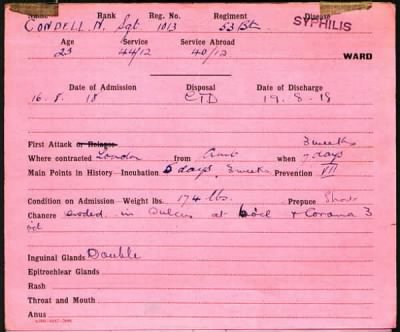 Name Rank Reg. No. Regiment Disease
CONDELL. N. Sgt. 1013 53 Btn. SYPHILIS
Age Service Service Abroad
23 44/12 40/12 WARD
Date of Admission Disposal Date of Discharge
16. 8. 18 CTD 19. 8 - 18
First Attack or Relapse 3 weeks
Where contracted London from when 7 days
Main Points in History—Incubation 5 days, 3 weeks Prevention
Condition on Admission—Weight lbs. 174 lbs. Prepuce Short
Chancre eroded in Sulcus at 6 ocl + Corona 3
ocl
Inguinal Glands Double
Epitrochlear Glands
Rash
Throat and Mouth
Anus